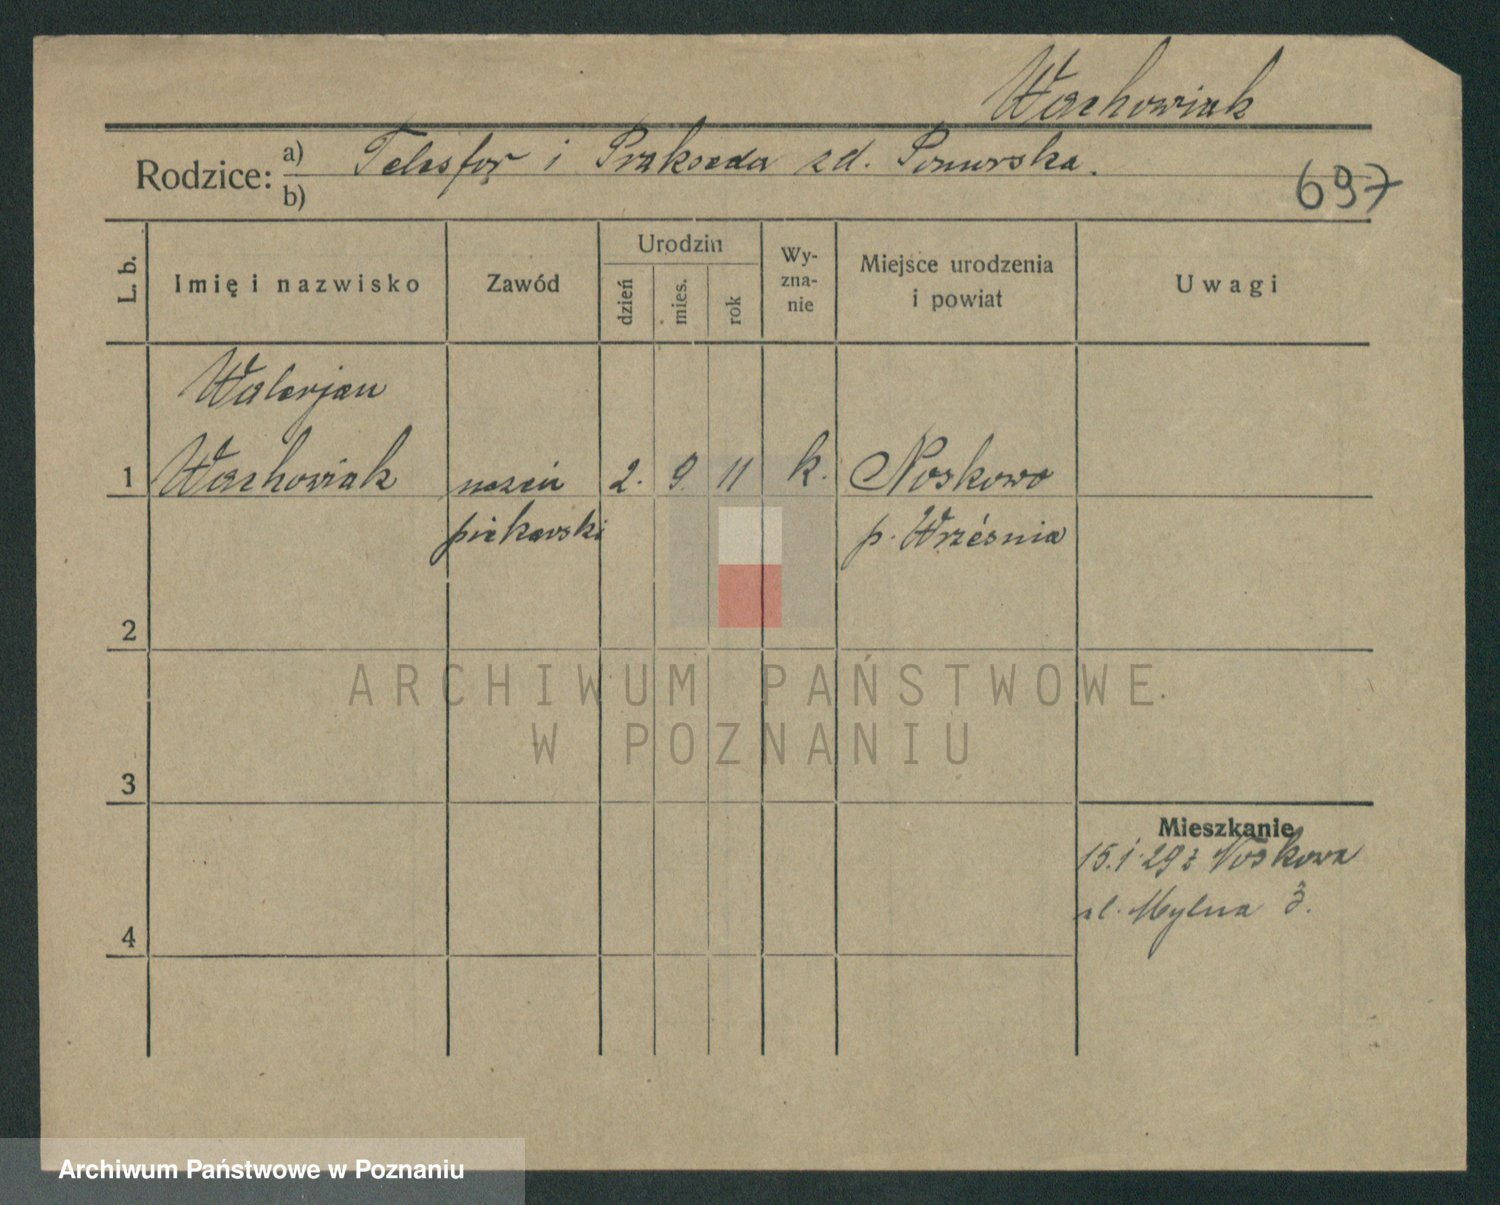 Wachowiak
Rodzice: a) Telesfor i Prakseda zd. Pomurska.
b)
697
L. b.
Imię i nazwisko
Zawód
Urodzin
dzień
mies.
rok
Wy-
zna-
nie
Miejsce urodzenia
i powiat
Uwagi
Walerjan
1 Wachowiak uczeń 2. 9. 11 k. Noskowo
piekarski p. Września
2
3
4
Mieszkanie
15.1.29 z Noskowa
ul. Mylna 3.
ARCHIWUM PAŃSTWOWE
W POZNANIU
Archiwum Państwowe w Poznaniu